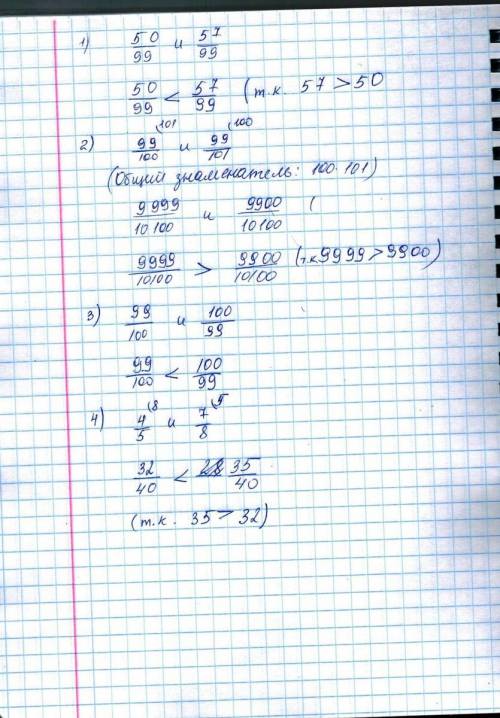 1) 50/99 и 57/99
50/99 < 57/99 (т.к. 57 > 50
2) 99/100 (101 и 99/101 (100
(Общий знаменатель: 100·101)
9999/10100 и 9900/10100 (
9999/10100 > 9900/10100 (т.к 9999 > 9900)
3) 99/100 и 100/99
99/100 < 100/99
4) 4/5 (8 и 7/8 (5
32/40 < 35/40
(т.к. 35 > 32)